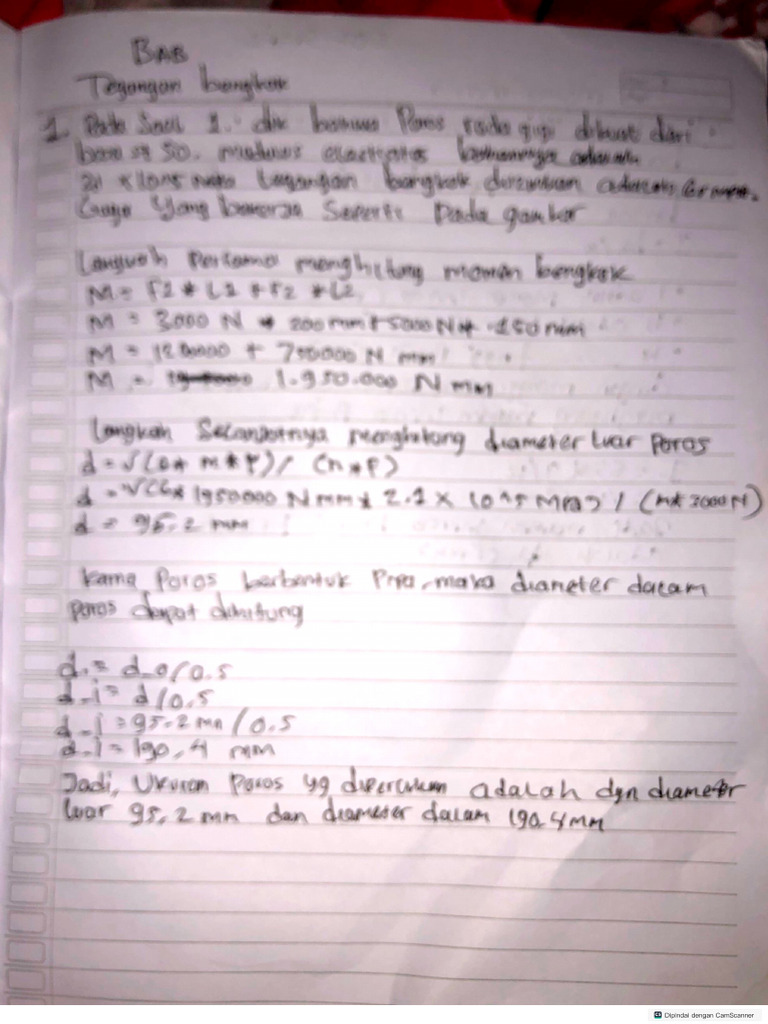 BAB
Tegangan bengkok
1. Pada Soal 1. dik bahwa Poros roda gigi dibuat dari
baja st 50. modulus elastisitas bahannya adalah
maka tegangan bengkok diizinkan adalah
Gaya yang bekerja Seperti Pada gambar
Langkah Pertama menghitung momen bengkok
M = F1 * L1 + F2 * L2
M = 3000 N * 200 mm + 5000 N * 150 mm
M = 1200000 + 750000 N mm
M = 1.950.000 N mm
Langkah Selanjutnya menghitung diameter luar poros
d = √(6 * m * p) / (π * F)
d = √(6 * 1950000 N mm * 2.1 x 10^5 MPa) / (π * 3000 N)
d = 95.2 mm
Karna Poros berbentuk Pipa, maka diameter dalam
Poros dapat dihitung
d_i = d_o / 0.5
d_i = d / 0.5
d_i = 95.2 mm / 0.5
d_i = 190,4 mm
Jadi, Ukuran Poros yg diperlukan adalah dgn diameter
luar 95,2 mm dan diameter dalam 190.4 mm
Dipindai dengan CamScanner